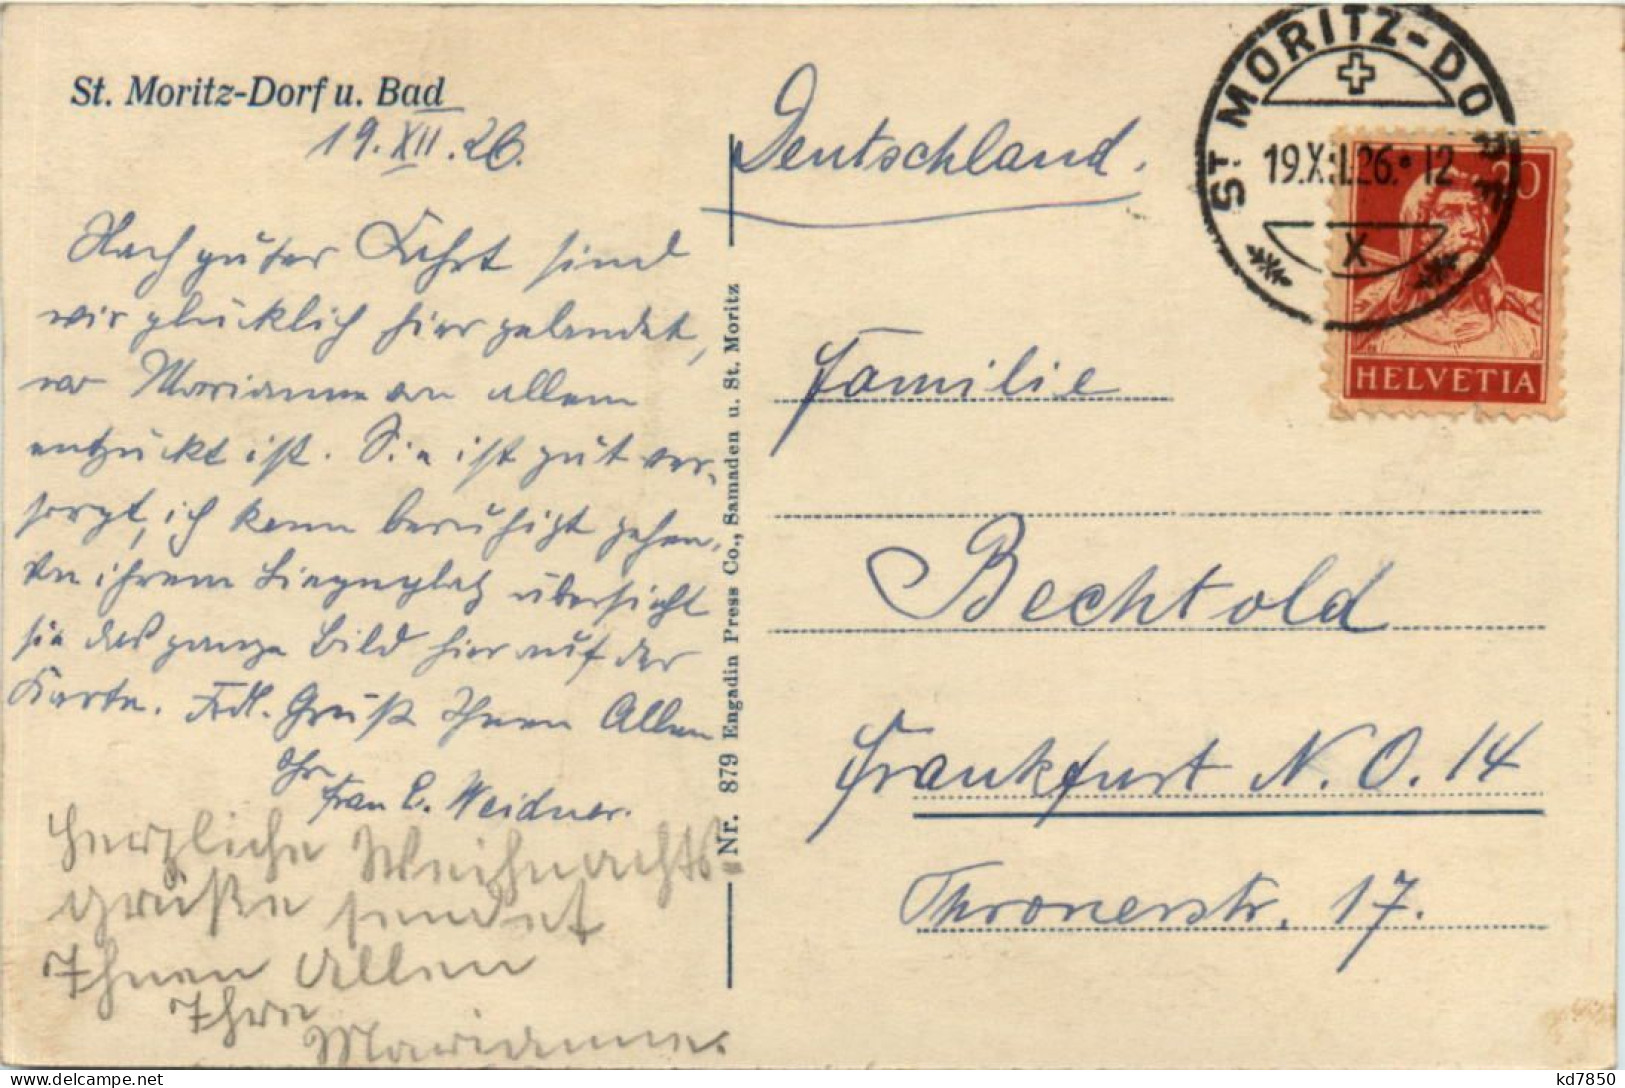 St. Moritz-Dorf u. Bad
19.XII.26.
Nach guter Fahrt sind
wir glücklich hier gelandet,
wo Marianne von allem
entzückt ist. Sie ist gut ver-
sorgt, ich kann beruhigt gehen.
Von ihrem Liegeplatz übersieht
sie das ganze Bild hier auf der
Karte. Frdl. Gruß Ihnen Allen
Ihre
Frau E. Weidner.
Herzliche Weihnachts-
grüße sendet
Ihnen Allen
Ihre
Marianne.
Nr. 879 Engadin Press Co., Samaden u. St. Moritz
Deutschland.
ST. MORITZ-DORF
19.XII.26.* 12
X
20
HELVETIA
Familie
Bechtold
Frankfurt N.O.14
Thronerstr. 17.
kd7850